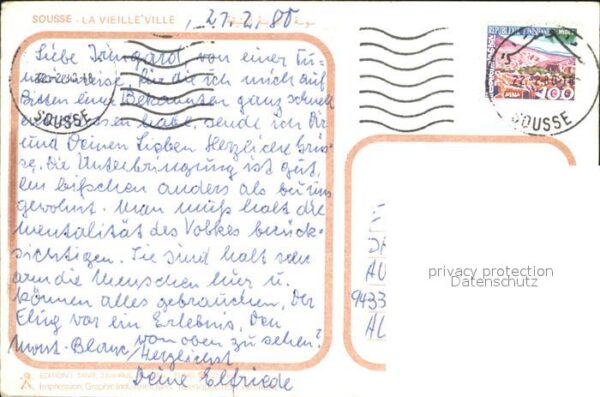 SOUSSE - LA VIEILLE VILLE
27.2.80
Liebe Irmgard, von einer Tu-
nesienreise, für die ich mich auf
Bitten einer Bekannten ganz schnell
habe, sende ich Dir
und Deinen Lieben Herzliche Grüs-
se. Die Unterbringung ist gut,
ein bißchen anders als bei uns
gewohnt. Man muß halt die
Mentalität des Volkes berück-
sichtigen. Sie sind halt sehr
arm die Menschen hier u.
können alles gebrauchen. Der
Flug war ein Erlebnis. Den
Mont-Blanc von oben zu sehen!
Herzlichst
Deine Elfriede
SOUSSE
SOUSSE
100
9433
privacy protection
Datenschutz